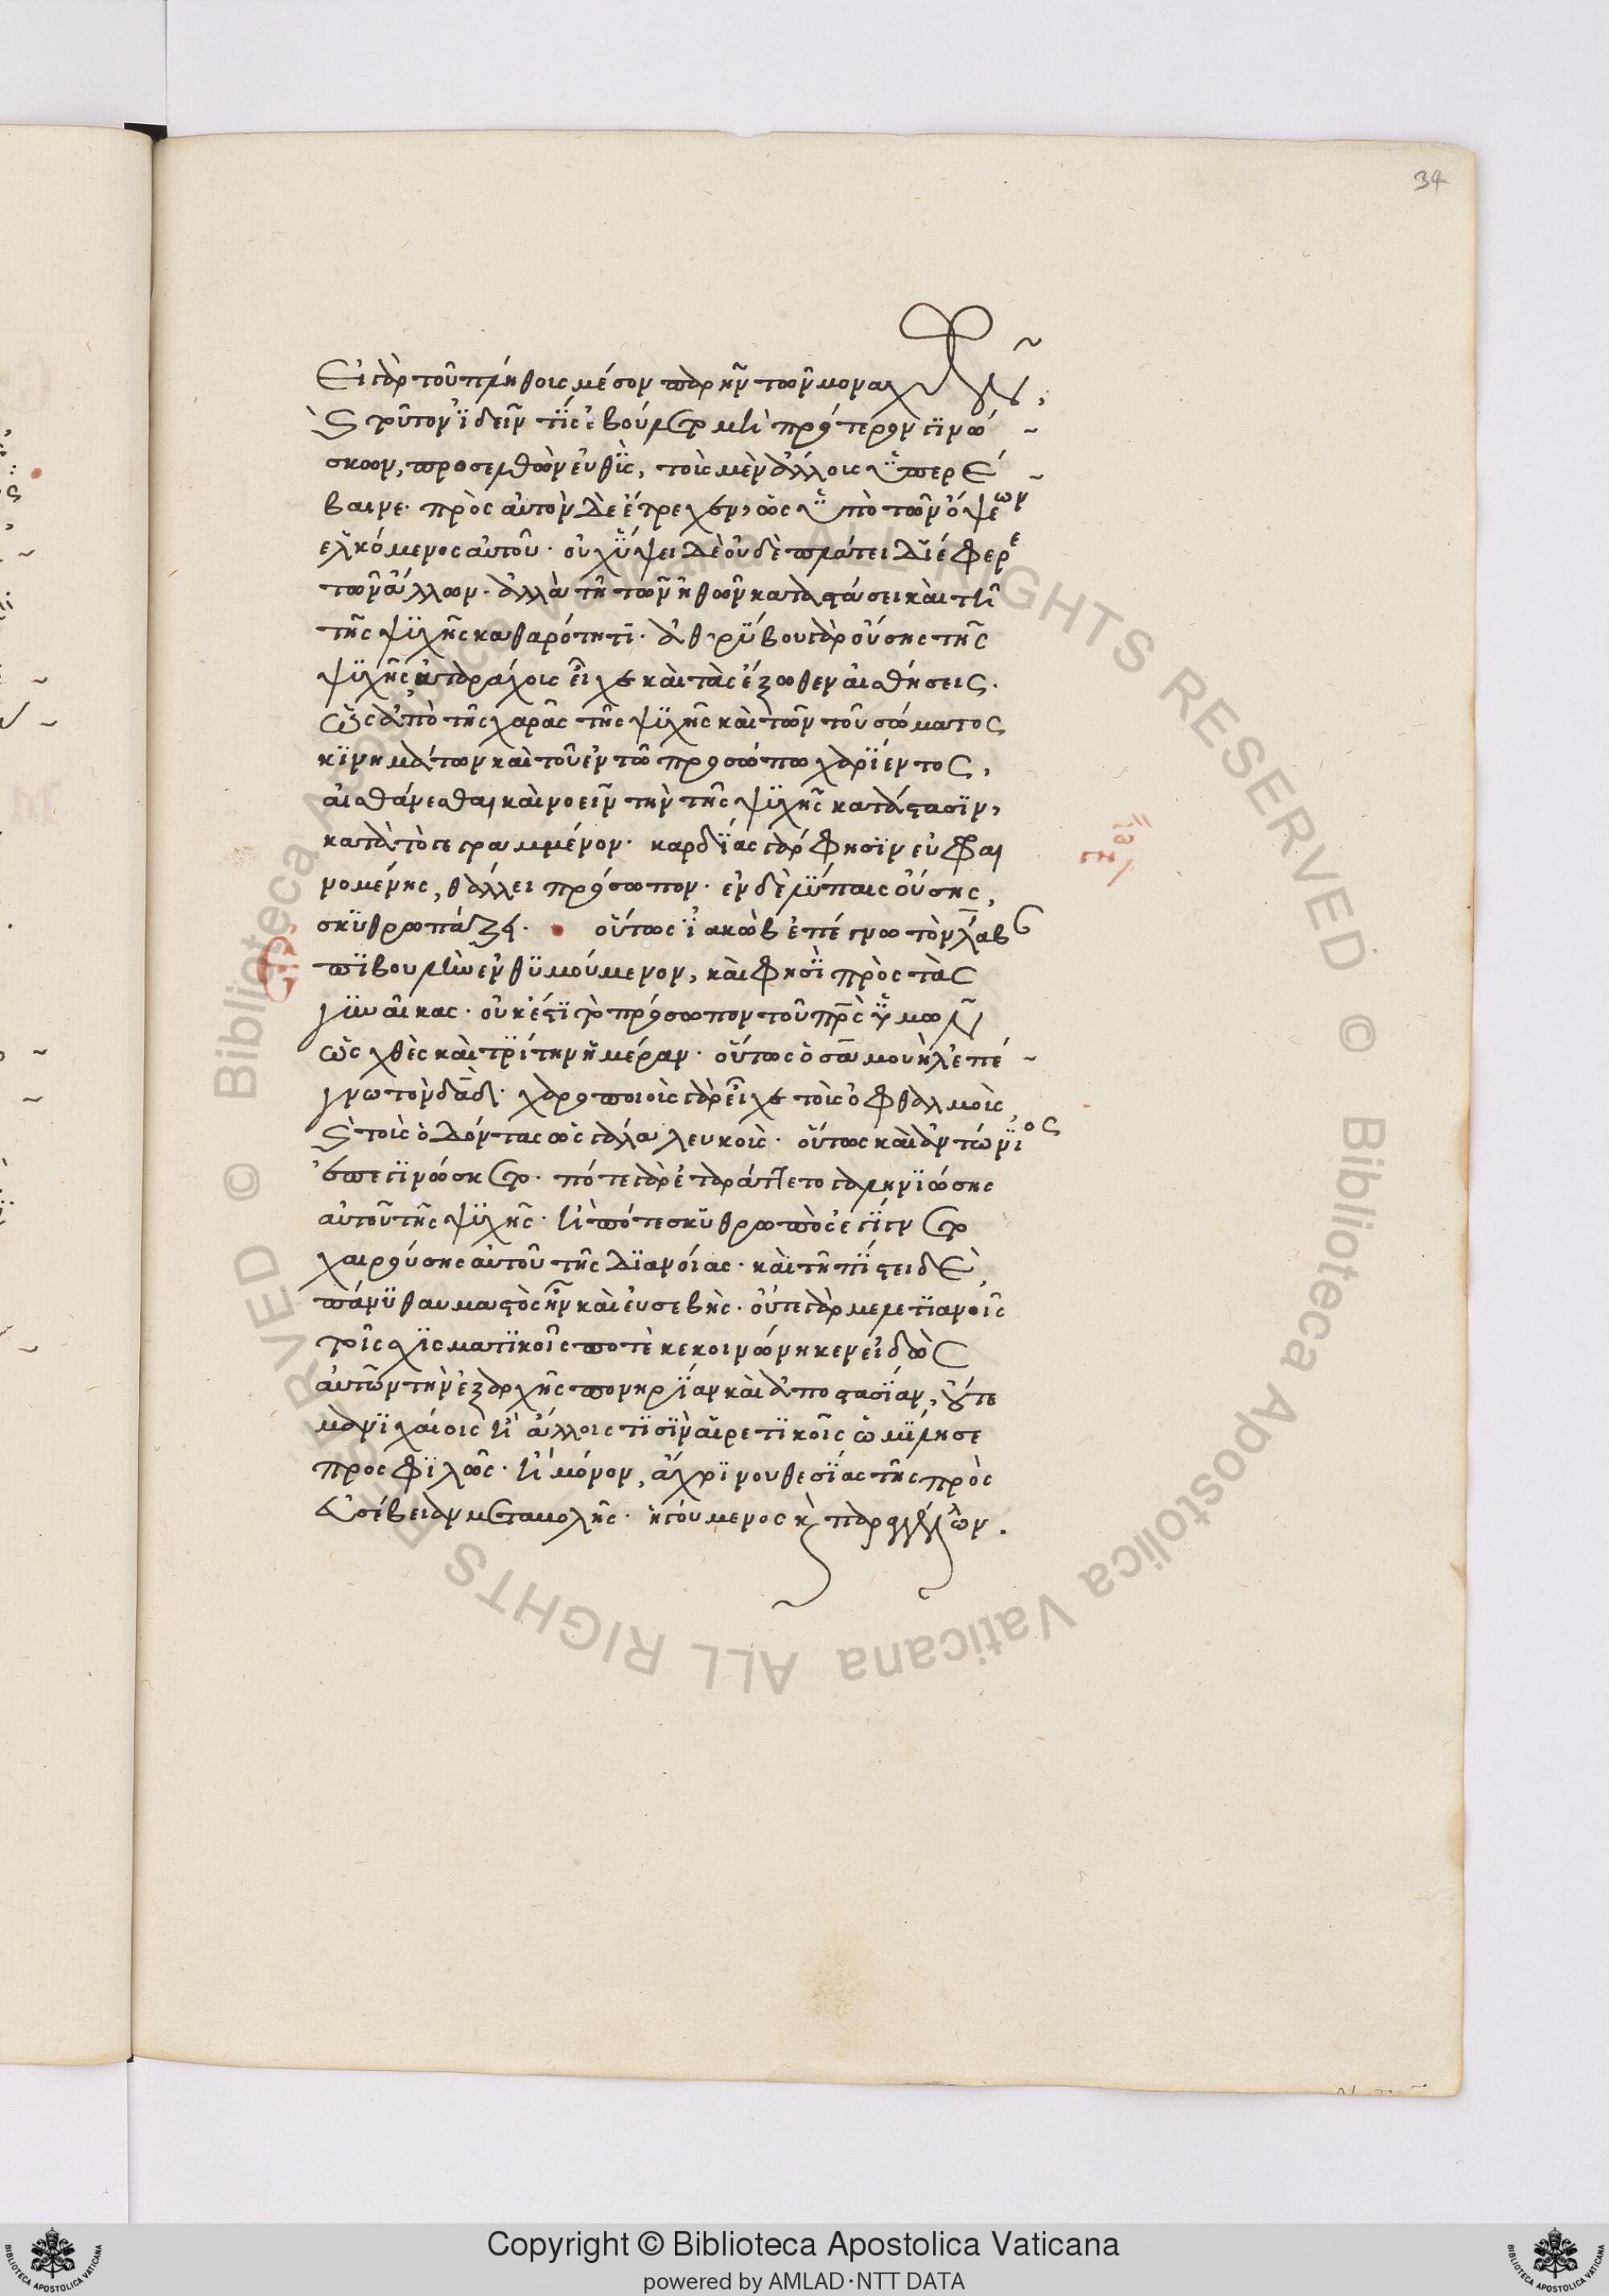 34
Εἰ γὰρ τοῦ πλήθοις μέσον παρῆν τῶν μοναχῶν,
καὶ τοῦτον ἰδεῖν τὶς ἐβούλετο μὴ πρότερον γινώ
σκων, προσελθὼν εὐθὺς, τοὶς μὲν ἄλλοις ὑπερέ
βαινε· πρὸς αὐτὸν δὲ ἔτρεχεν, ὡς ὑπὸ τῶν ὄψεων
ἑλκόμενος αὐτοῦ· οὐχ ὕψει δὲ οὐδὲ πλάτει διέφερε
τῶν ἄλλων· ἀλλὰ τῇ τῶν ἠθῶν καταστάσει καὶ τῇ
τῆς ψυχῆς καθαρότητι· ἀθορύβου γὰρ οὔσης τῆς
ψυχῆς ἀταράχοις εἶχε καὶ τὰς ἔξωθεν αἰσθήσεις·
ὡς ἀπὸ τῆς χαρᾶς τῆς ψυχῆς καὶ τῶν τοῦ σώματος
κινημάτων καὶ τοῦ ἐν τῶ προσώπω χαρίεντος,
αἰσθάνεσθαι καὶ νοεῖν τὴν τῆς ψυχῆς κατάστασιν,
κατὰ τὸ γεγραμμένον· καρδίας γὰρ φησὶν εὐφραι
νομένης, θάλλει πρόσωπον· ἐν δὲ λύπαις οὔσης,
σκυθρωπάζει· οὕτως ἰακὼβ ἐπέγνω τὸν λάβαν
ἐπιβουλὴν ἐνθυμούμενον, καὶ φησὶ πρὸς τὰς
γυναῖκας· οὐκ ἔστι τὸ πρόσωπον τοῦ πρς ὑμῶν
ὡς χθὲς καὶ τρίτην ἡμέραν· οὕτως ὁ σαμουὴλ ἐπέ
γνω τὸν δαδ· χαροποιοὶς γὰρ εἶχε τοὶς ὀφθαλμοὶς,
καὶ τοὶς ὀδόντας ὡς γάλα λευκοὶς· οὕτως καὶ ἀντώνιος
ἐπεγινώσκετο· πότε γὰρ ἐταράττετο γαληνιώσης
αὐτοῦ τῆς ψυχῆς· ἢ πότε σκυθρωπὸς ἐγίγνετο
χαιρούσης αὐτοῦ τῆς διανοίας· καὶ τῇ πίστει δὲ,
πάνυ θαυμαστὸς ἦν καὶ εὐσεβής· οὔτε γὰρ μελετιανοῖς
τοῖς σχισματικοῖς ποτὲ κεκοινώνηκεν εἰδὼς
αὐτῶν τὴν ἐξ ἀρχῆς πονηρίαν καὶ ἀποστασίαν, οὔτε
μανιχαίοις ἢ ἄλλοις τισὶν αἱρετικοῖς ὡμίλησε
προς φιλικῶς· ἢ μόνον, ἄχρι νουθεσίας τῆς πρὸς
εὐσέβειαν μεταβολῆς· ἡγούμενος καὶ παραγγέλλων.
Copyright © Biblioteca Apostolica Vaticana
powered by AMLAD·NTT DATA